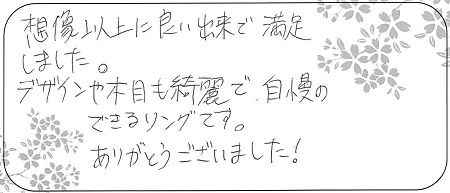 想像以上に良い出来で満足
しました。
デザインや木目も綺麗で、自慢の
できるリングです。
ありがとうございました!